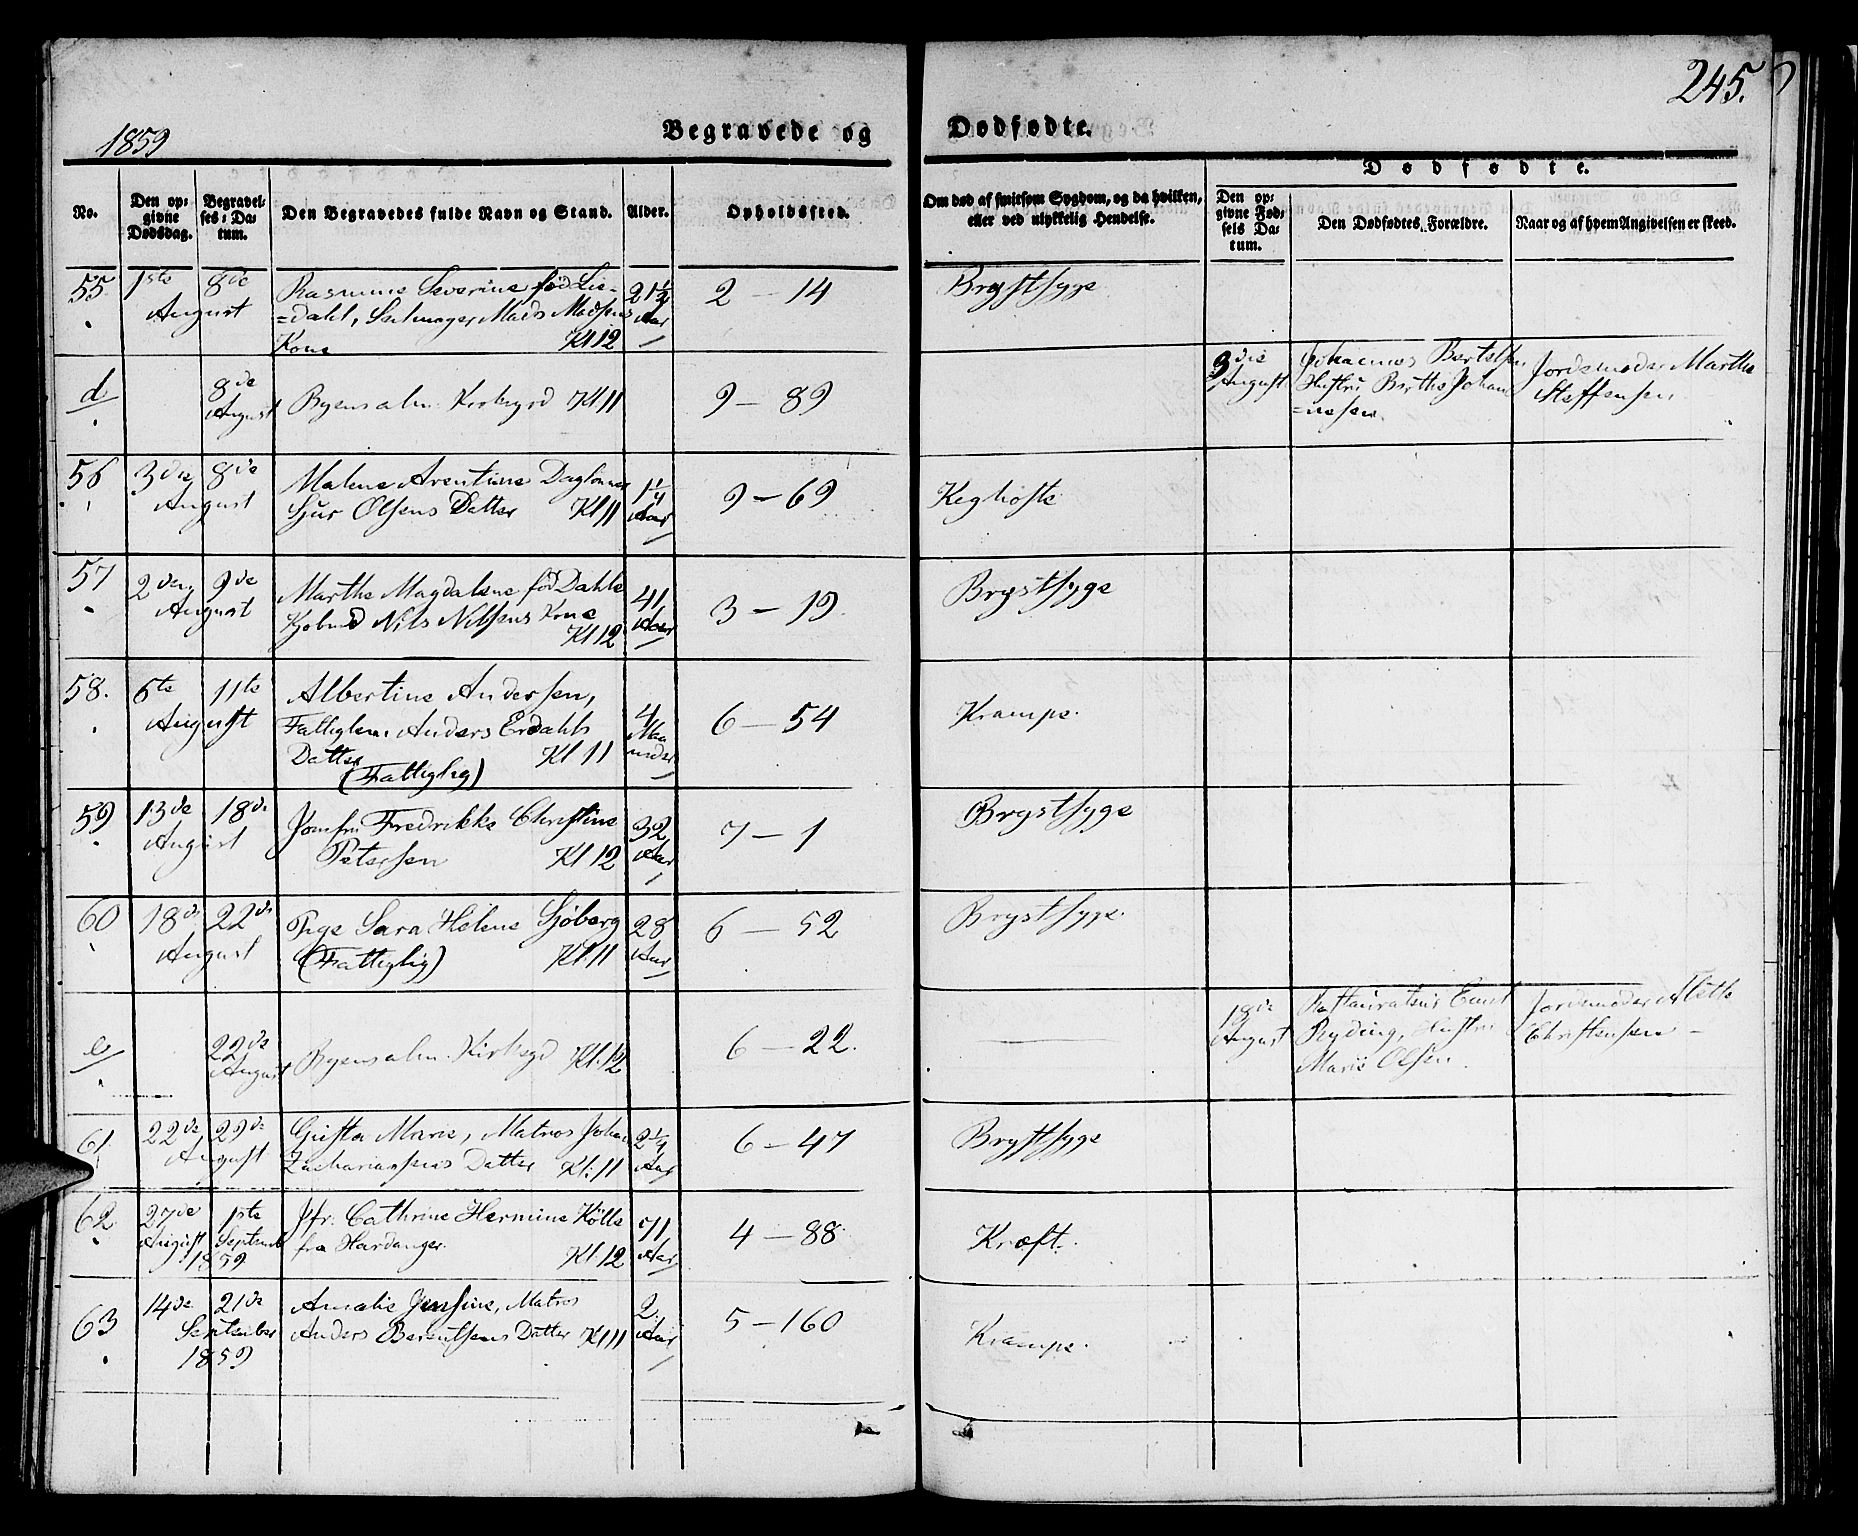 245.
1859
Begravede og Dødfødte.
No.
Den op-
givne
Dødsdag.
Begravel-
ses-Da-
tum.
Den Begravedes fulde Navn og Stand.
Alder.
Opholdssted.
Om død af smitsom Sygdom, og da hvilken,
eller ved ulykkelig Hendelse.
Dødfødte.
Den op-
givne Fød-
sels Da-
tum.
Den Dødfødtes Forældre.
Naar og af hvem Angivelsen er skeed.
55. 1ste 8de Rasmine Severine fød Lie- 21½ 2 – 14 Brystsyge
August =dahl, Mads Madsens Aar
Kone Kl 12
d 8de Byens alm. Kirkegrd Kl 11 9 – 89 3die Johannes Bertelsen Jordemoder Marthe
August August Hustru Birthe Johan Steffensen
=nesen.
56 3die 8de Malene Arentine Daglønner 1¼ 9 – 69 Keghoste
August Sjur Olsens Datter Kl 11 Aar
57 2den 9de Marthe Magdalene fød Dahle 41 3 – 19. Brystsyge
August Kjøbmd Nils Nilsens Kone Aar
Kl 12
58. 6te 11te Albertine Andersen, 4 6 – 54 Krampe.
August Fattiglem Anders Erdahls Maa
Datter Kl 11 neder
(Fattiglig)
59 13de 18de Jomfru Fredrikke Christine 32 7 – 1 Brystsyge
August Petersen Kl 12 Aar
60 18de 22de Pige Sara Helene Sjøberg 28 6 – 52 Brystsyge.
August (Fattiglig) Kl 11 Aar
e 22de Byens alm. Kirkegd Kl. 12 6 – 22. 18de Ernst Jordemoder Alette
August August Ryding, Hustru Christensen –
Marie Olsen.
61 22de 29de Gusta Marie, Matros Johan 2¼ 6 – 47 Brystsyge
August Zachariassens Datter Kl. 11 Aar
62 27de 1ste Jfr. Cathrine Hermine Kölle 71 4 – 88 Kræft.
August Septemb fra Hardanger. Kl. 12 Aar
1859
63 14de 21de Amalie Jensine, Matros 2 5 – 160 Krampe.
September Anders Berentsens Datter Kl 11 Aar
1859